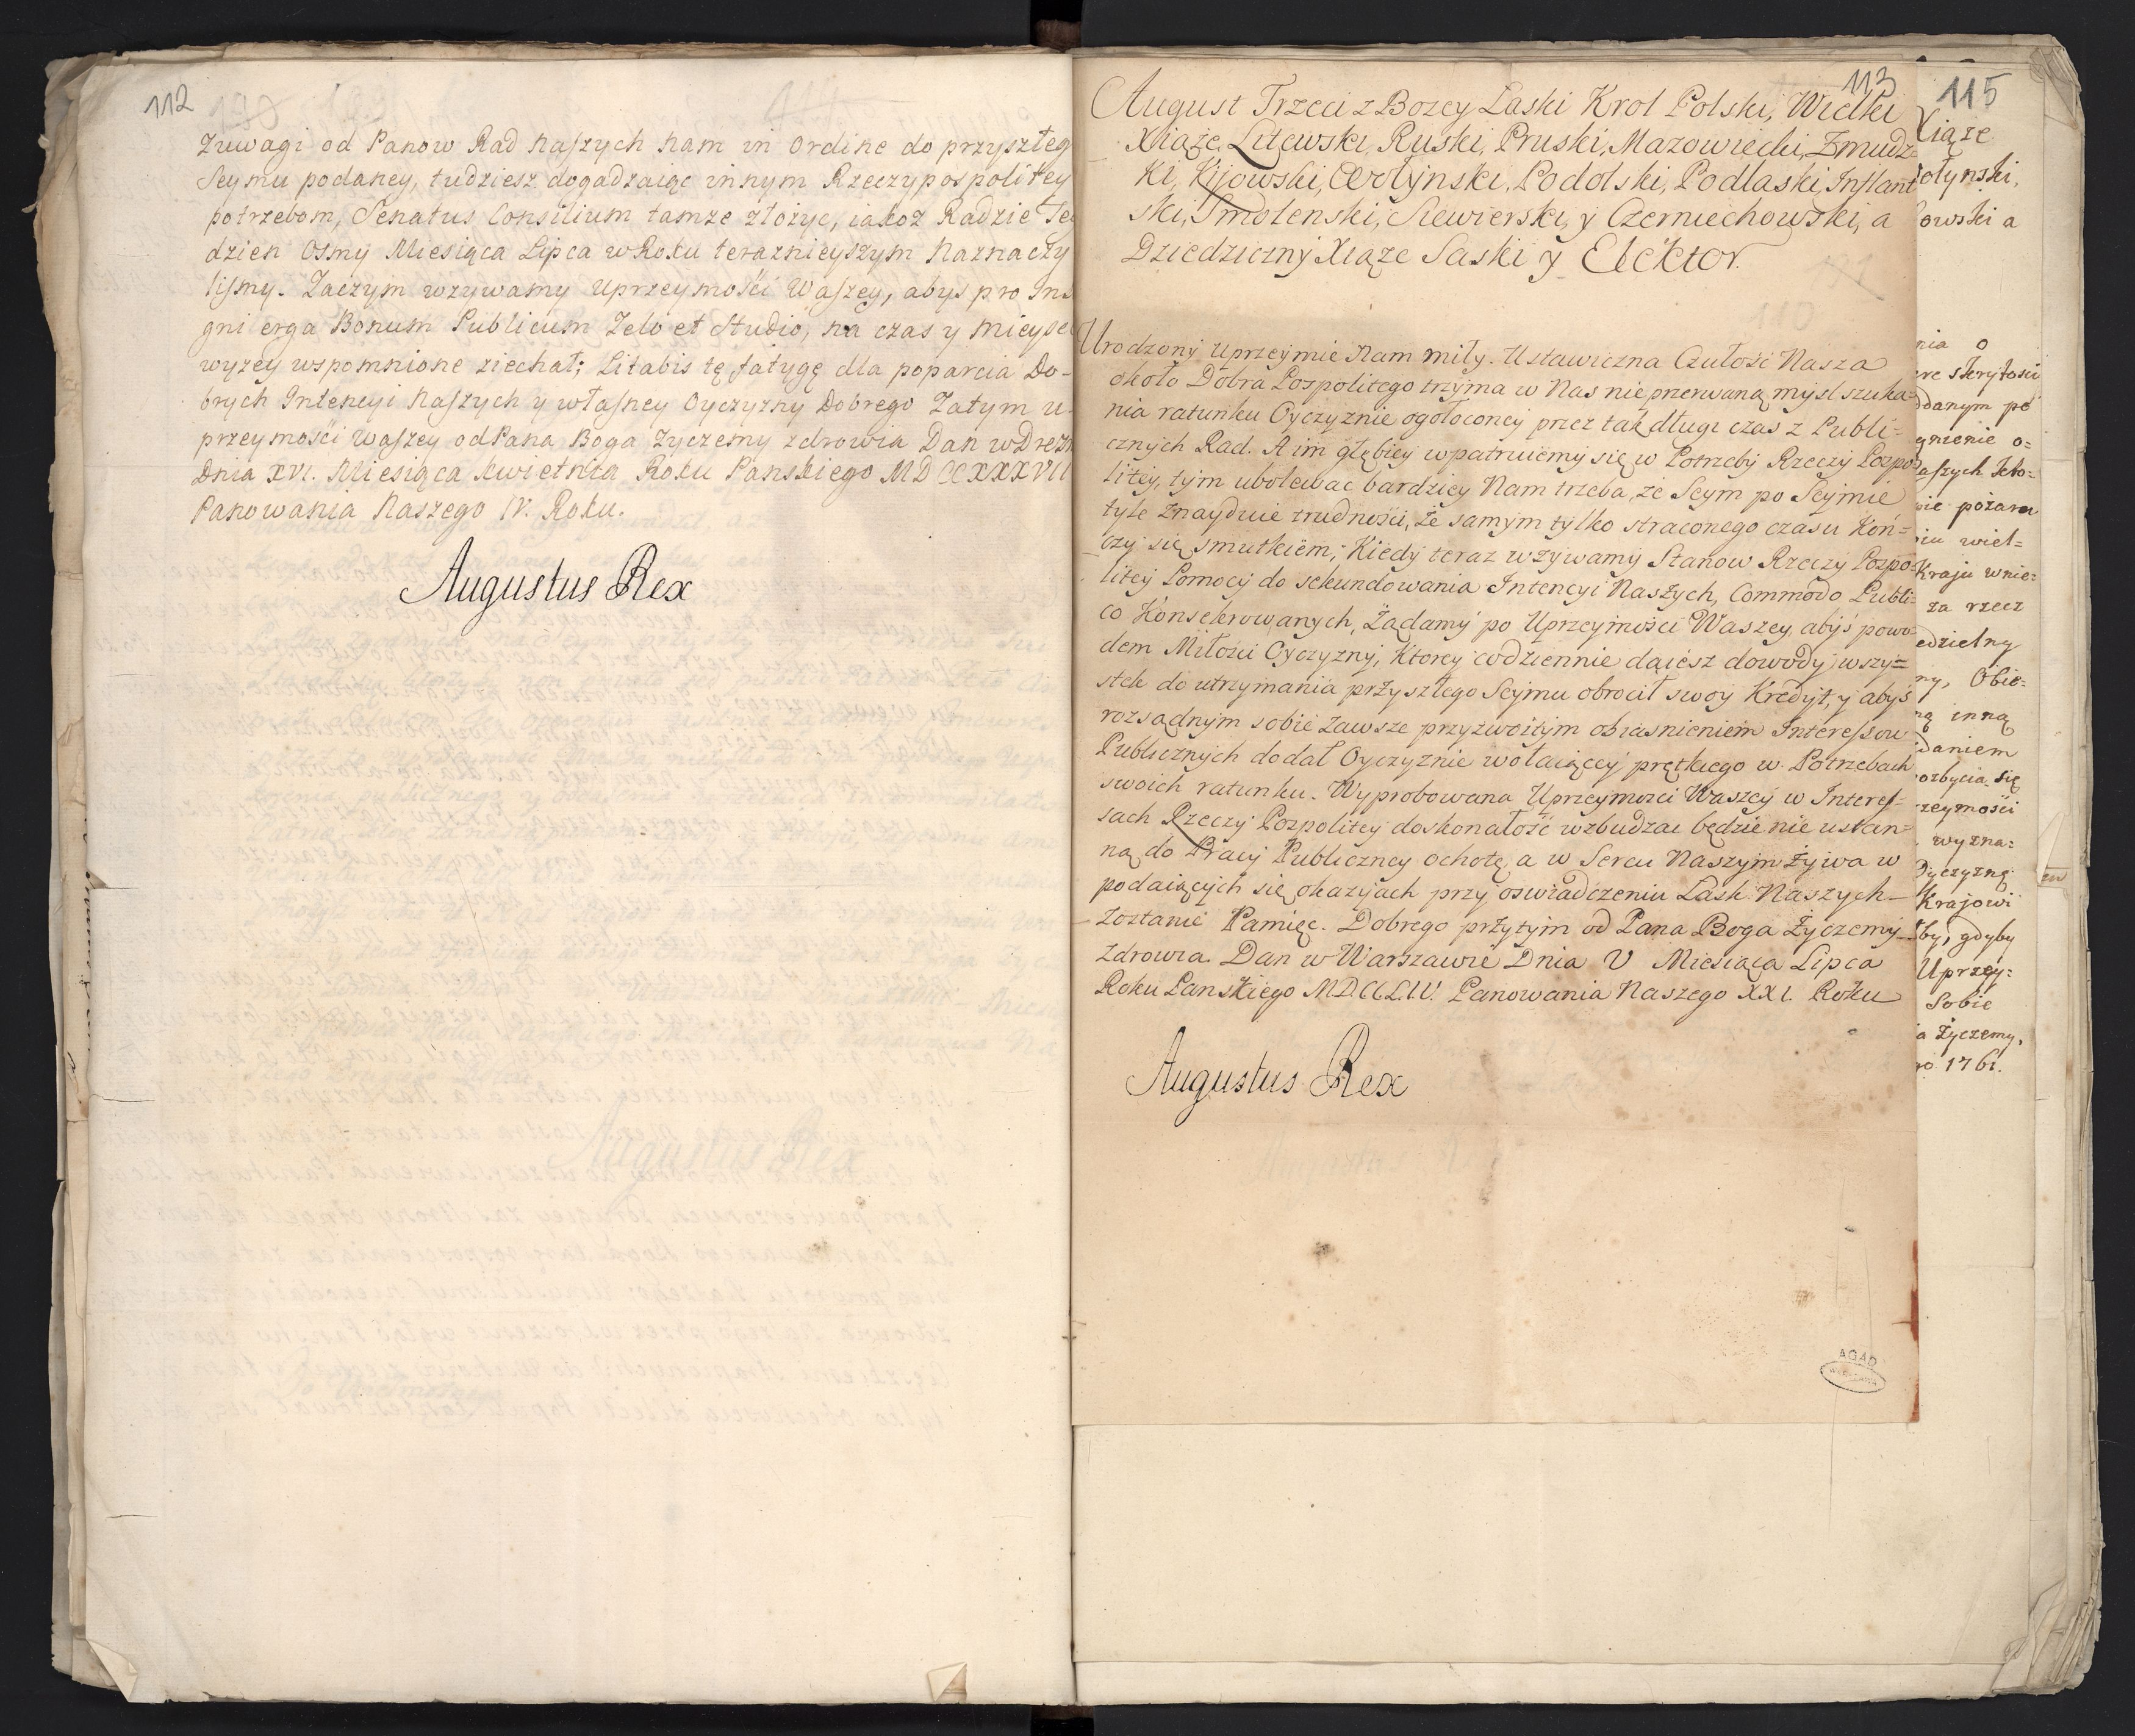 112
zuwagi od Panow Rad naszych nam in ordine do przyszłeg
Seymu podaney, tudziesz dogadzaiąc innym Rzeczypospolitey
potrzebom, Senatus Consilium tamze złożyc, iakoż Radzie Te
dzien Osmy Miesiąca Lipca w Roku teraznieyszym naznaczy
lismy. Zaczym wzywamy Uprzeymości Waszey, abys pro Ins
gni erga Bonum Publicum Zelo et Studio, na czas y mieysc
wyzey wspomnione ziechał; Litabis tę fatygę dla poparcia Do-
brych Intencyi naszych y własney Oyczyzny Dobrego Zatym u-
przeymości waszey od Pana Boga życzemy zdrowia Dan w Drezn
Dnia XVI. Miesiąca kwietnia Roku Panskiego MDCCXXXVII
Panowania Naszego IV. Roku.
Augustus Rex
113
August Trzeci z Bozey Laski Krol Polski, Wielki
Xiąże, Litewski, Ruski, Pruski, Mazowiecki, Zmudz
ki, Kijowski, Wołynski, Podolski, Podlaski, Inflant
ski, Smolenski, Siewierski, y Czerniechowski, a
Dziedziczny Xiąze Saski y Elektor.
110
Urodzony uprzeymie Nam miły. Ustawiczna Czułość Nasza
około Dobra Pospolitego trzyma w Nas nieprzerwaną mysl szuka-
nia ratunku Oyczyznie ogołoconey przez tak długi czas z Publi-
cznych Rad. A im głębiey wpatruiemy się w Potrzeby Rzeczy Pospo
litey, tym ubolewać bardziey Nam trzeba, że Seym po Seymie
tyle znayduie trudności, że samym tylko straconego czasu koń-
czy się smutkiem; Kiedy teraz wzywamy Stanow Rzeczy Pospo-
litey Pomocy do sekundowania Intencyi Naszych, Commodo Publi-
co Konsekrowanych, Żądamy po Uprzeymości Waszey, abyś powo-
dem Miłosci Oyczyzny, Ktorey codziennie daiesz dowody, wszy=
stek do utrzymania przyszłego Seymu obrocił swoy Kredyt, y abyś
rozsądnym sobie zawsze przyzwoitym obiasnieniem Interessow
Publicznych dodał Oyczyznie wołaiącey prętkiego w Potrzebach
swoich ratunku. Wyprobowana Uprzeymosci Waszey w Interes-
sach Rzeczy Pospolitey doskonałość wzbudzać będzie nie ustan-
ną do Pracy Publiczney ochotę, a w Sercu Naszym żywa w
podaiących się okazyach przy oswiadczeniu Lask Naszych
zostanie Pamięc. Dobrego przytym od Pana Boga życzemy
zdrowia. Dan w Warszawie Dnia V Miesiąca Lipca
Roku Panskiego MDCCLIV. Panowania Naszego XXI. Roku
Augustus Rex
AGAD
WARSZAWA
115
Xiąże
ołynski,
owski a
nia o
re skrytości
ddanym po
gnienie o=
aszych Teto=
ie pożaru
iu wiel=
Kraju wnie=
za rzecz
edzielny
ny, Obie=
ną inną
daniem
ozbycia się
zeymości
wyzna=
Oyczyznę
Krajowi
by, gdyby
Uprzey=
Sobie
a życzemy,
o 1761.